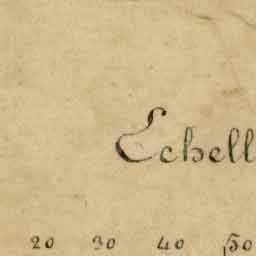 Echell
20 30 40 50